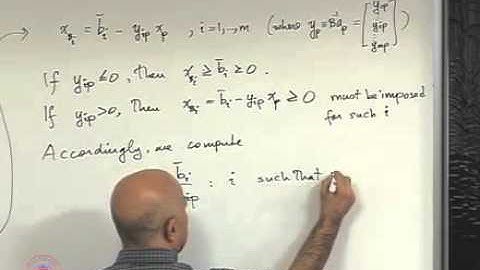 x_Bi = b̄i - yip xp , i=1,...,m (where yp = Bap = [y1p yip ymp])
If yip ≤ 0, Then x_Bi ≥ b̄i ≥ 0.
If yip > 0, Then x_Bi = b̄i - yip xp ≥ 0 must be imposed for such i
Accordingly, we compute
b̄i / yip : i such that